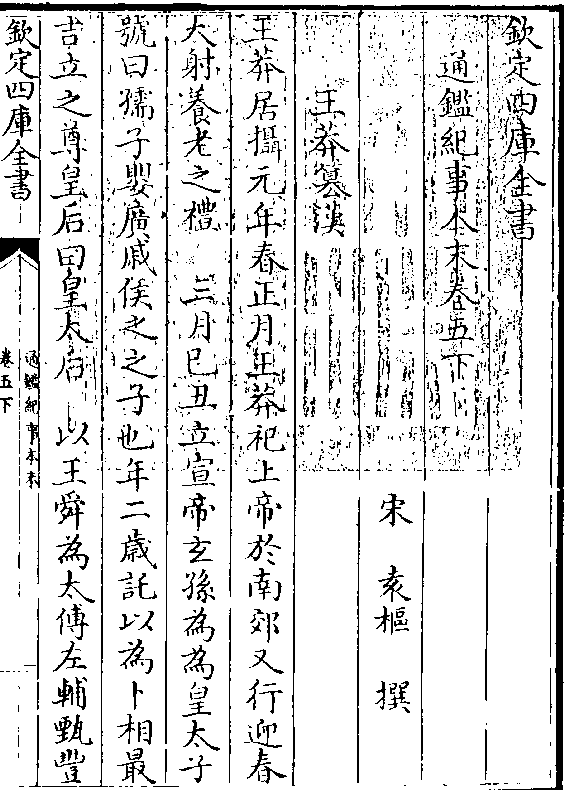 欽定四庫全書
通鑑紀事本末卷五下
宋 袁樞 撰
王莽篡漢
王莽居攝元年春正月王莽祀上帝於南郊又行迎春
大射養老之禮 三月己丑立宣帝玄孫為為皇太子
號曰孺子嬰廣戚侯之之子也年二歲託以為卜相最
吉立之尊皇后曰皇太后 以王舜為太傅左輔甄豐
欽定四庫全書
通鑑紀事本末
卷五下